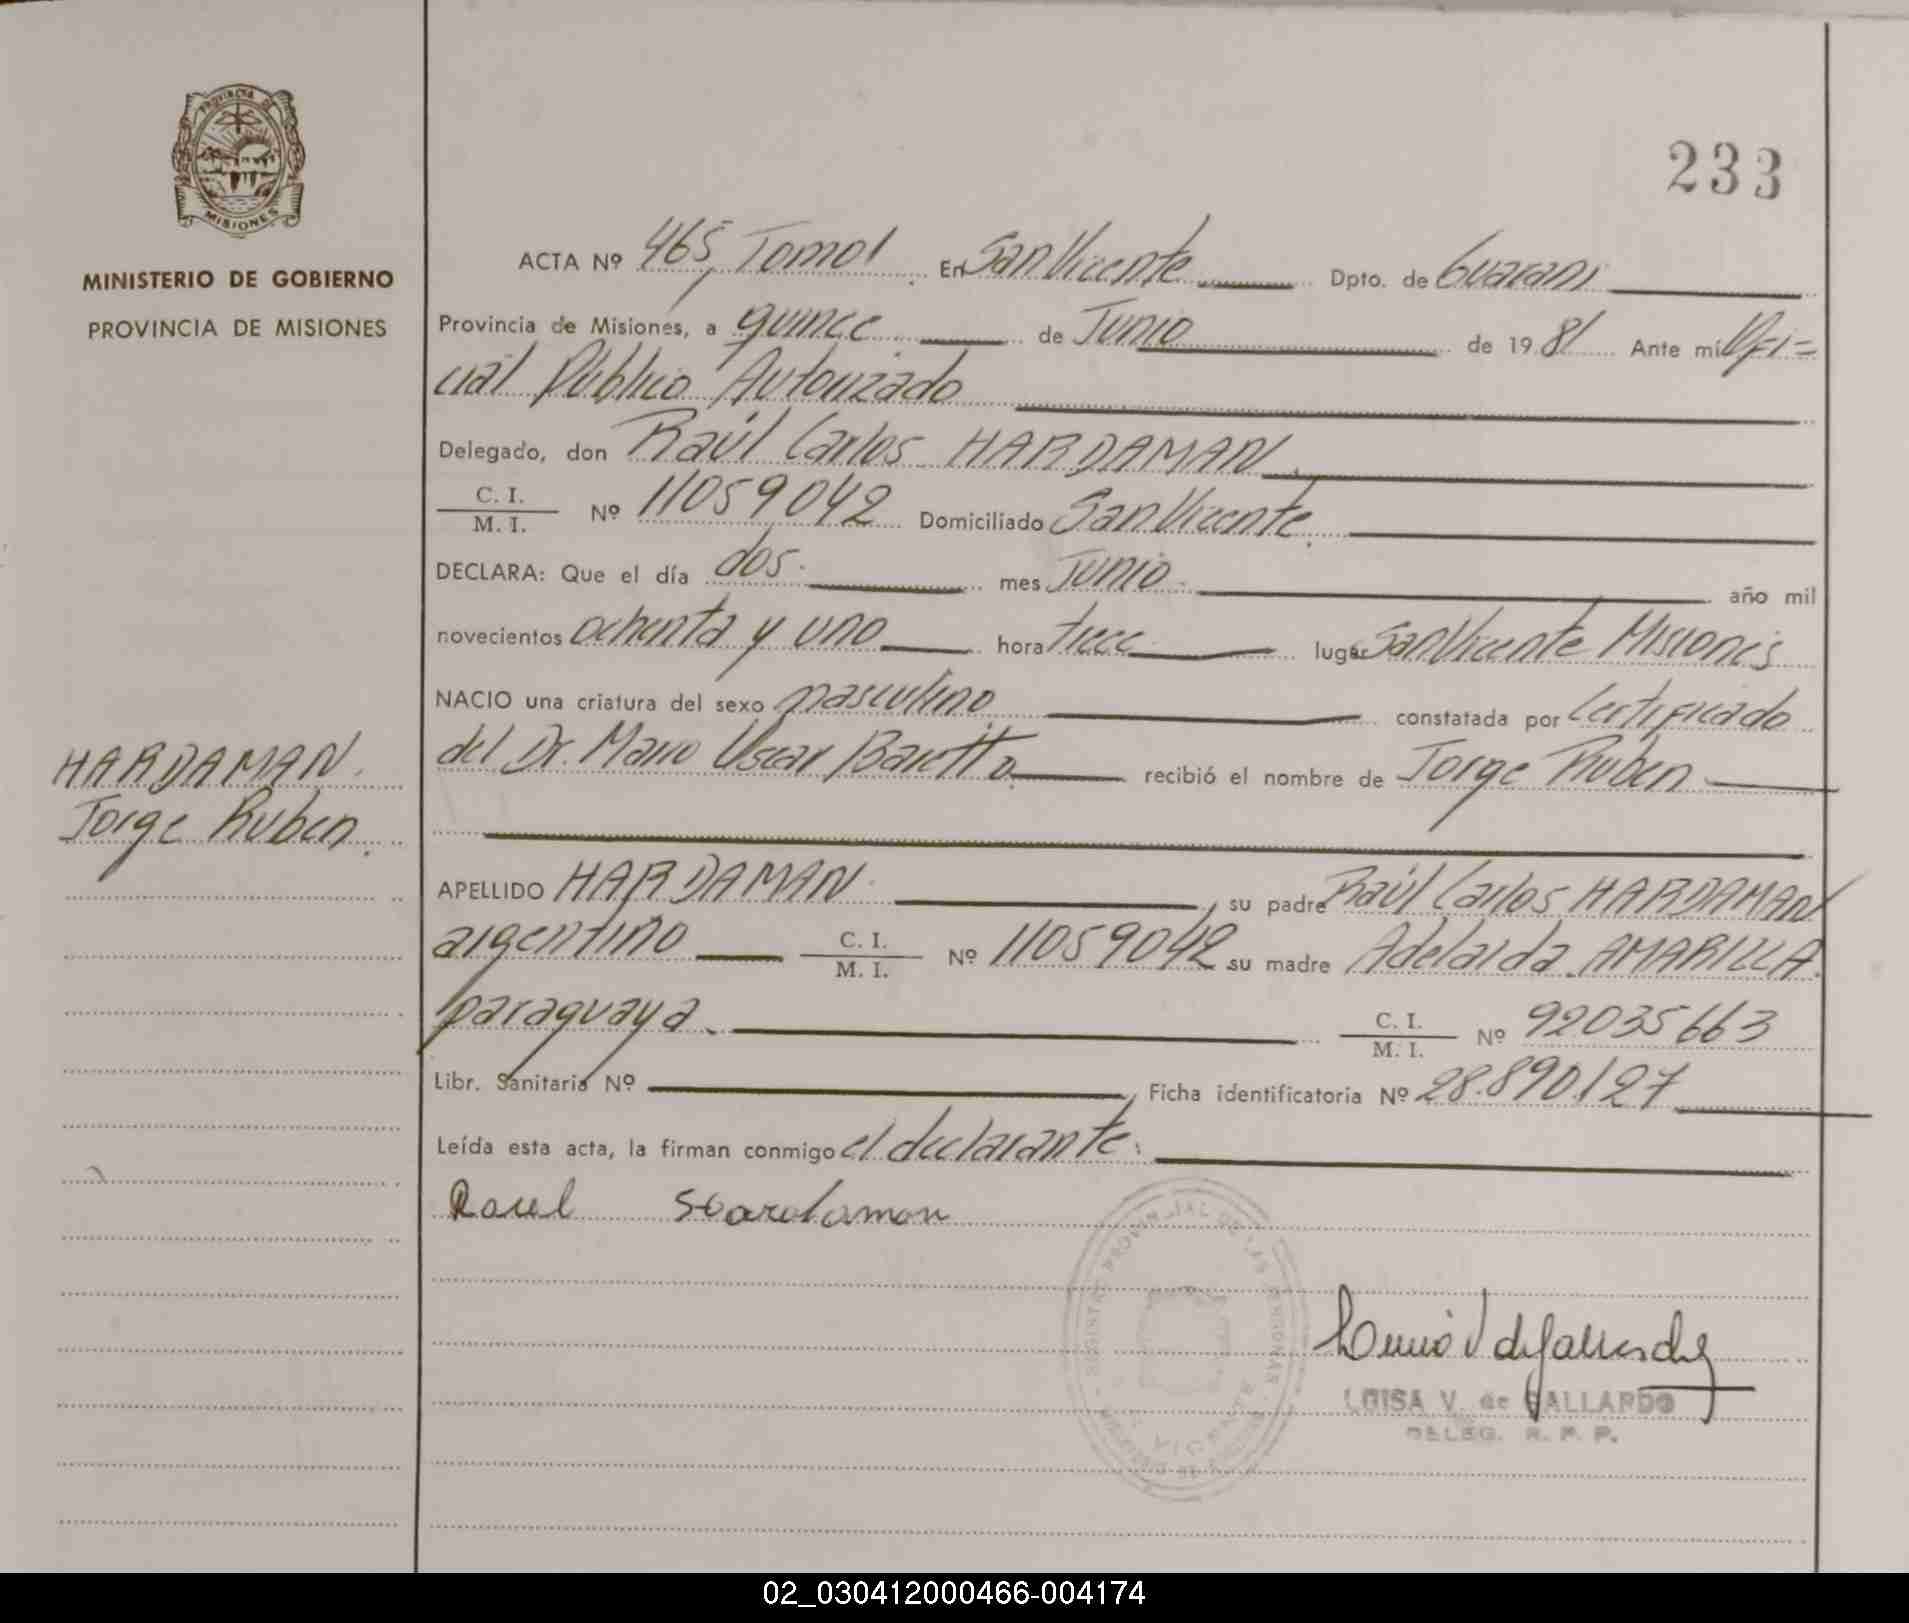 233
PROVINCIA DE
MISIONES
MINISTERIO DE GOBIERNO
PROVINCIA DE MISIONES
HARDAMAN.
Jorge Ruben.
ACTA Nº 465, Tomo 1. En San Vicente Dpto. de Guarani
Provincia de Misiones, a quince de Junio de 1981 Ante mi Ofi=
cial Público Autorizado
Delegado, don Raúl Carlos HARDAMAN.
C. I. / M. I. Nº 11059042 Domiciliado San Vicente.
DECLARA: Que el día dos. mes Junio. año mil
novecientos ochenta y uno hora trece lugar San Vicente Misiones
NACIO una criatura del sexo masculino. constatada por Certificado
del Dr. Mario Oscar Baretto. recibió el nombre de Jorge Ruben
APELLIDO HARDAMAN. , su padre Raúl Carlos HARDAMAN
argentino C. I. / M. I. Nº 11059042 su madre Adelaida AMARILLA.
paraguaya. C. I. / M. I. Nº 92035663
Libr. Sanitaria Nº , Ficha identificatoria Nº 28.890.127
Leída esta acta, la firman conmigo el declarante.
Raul Hardaman
REGISTRO PROVINCIAL DE LAS PERSONAS
LUISA V. de GALLARDO
DELEG. R. P. P.
02_030412000466-004174